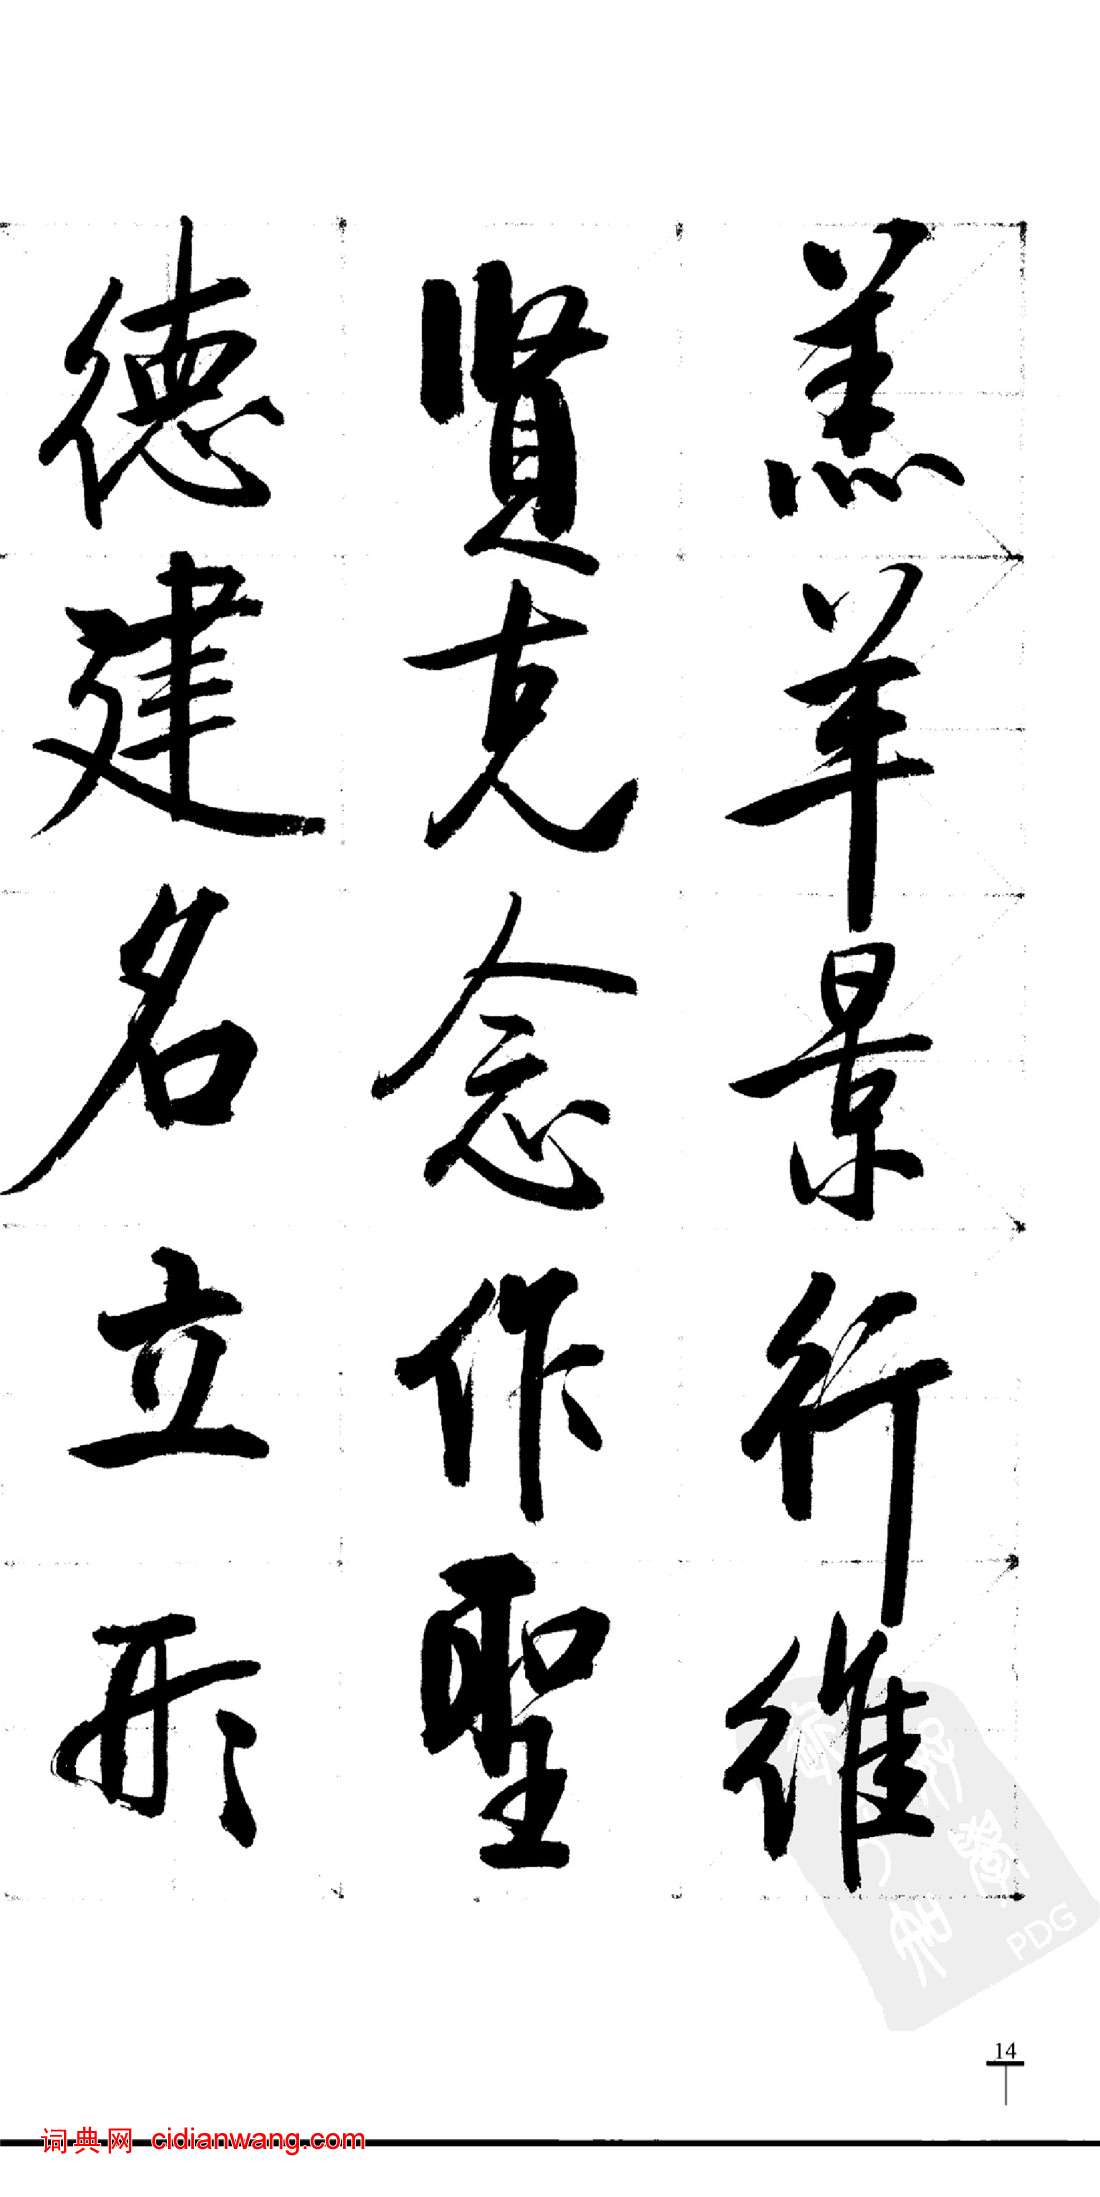 羔羊景行維
賢克念作聖
德建名立形
14
词典网 cidianwang.com
PDG